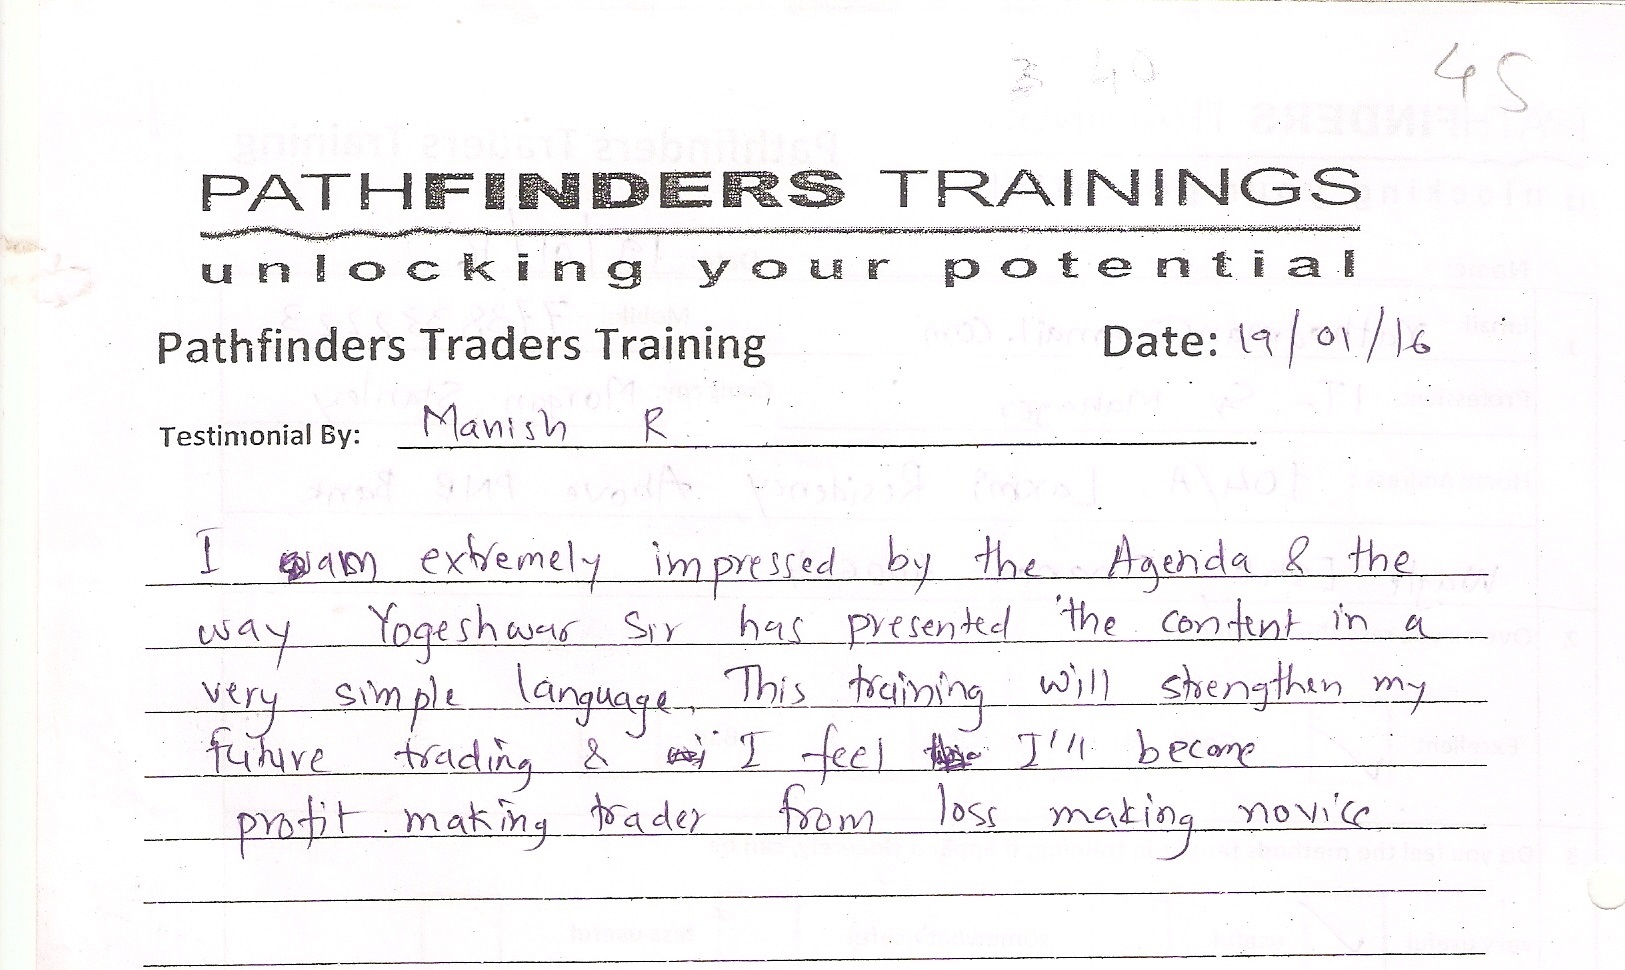 45
PATHFINDERS TRAININGS
unlocking your potential
Pathfinders Traders Training Date: 19/01/16
Testimonial By: Manish R
I am extremely impressed by the Agenda & the
way Yogeshwar Sir has presented the content in a
very simple language. This training will strengthen my
future trading & I feel I'll become
profit making trader from loss making novice